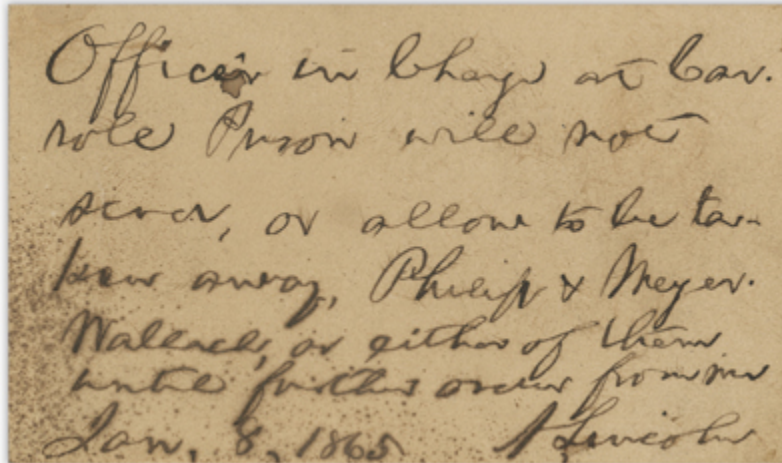 Officer in Charge at Car-
role Prison will not
send, or allow to be ta-
ken away, Philip & Meyer.
Wallach, or either of them
until further order from me
Jan. 8, 1865 A. Lincoln